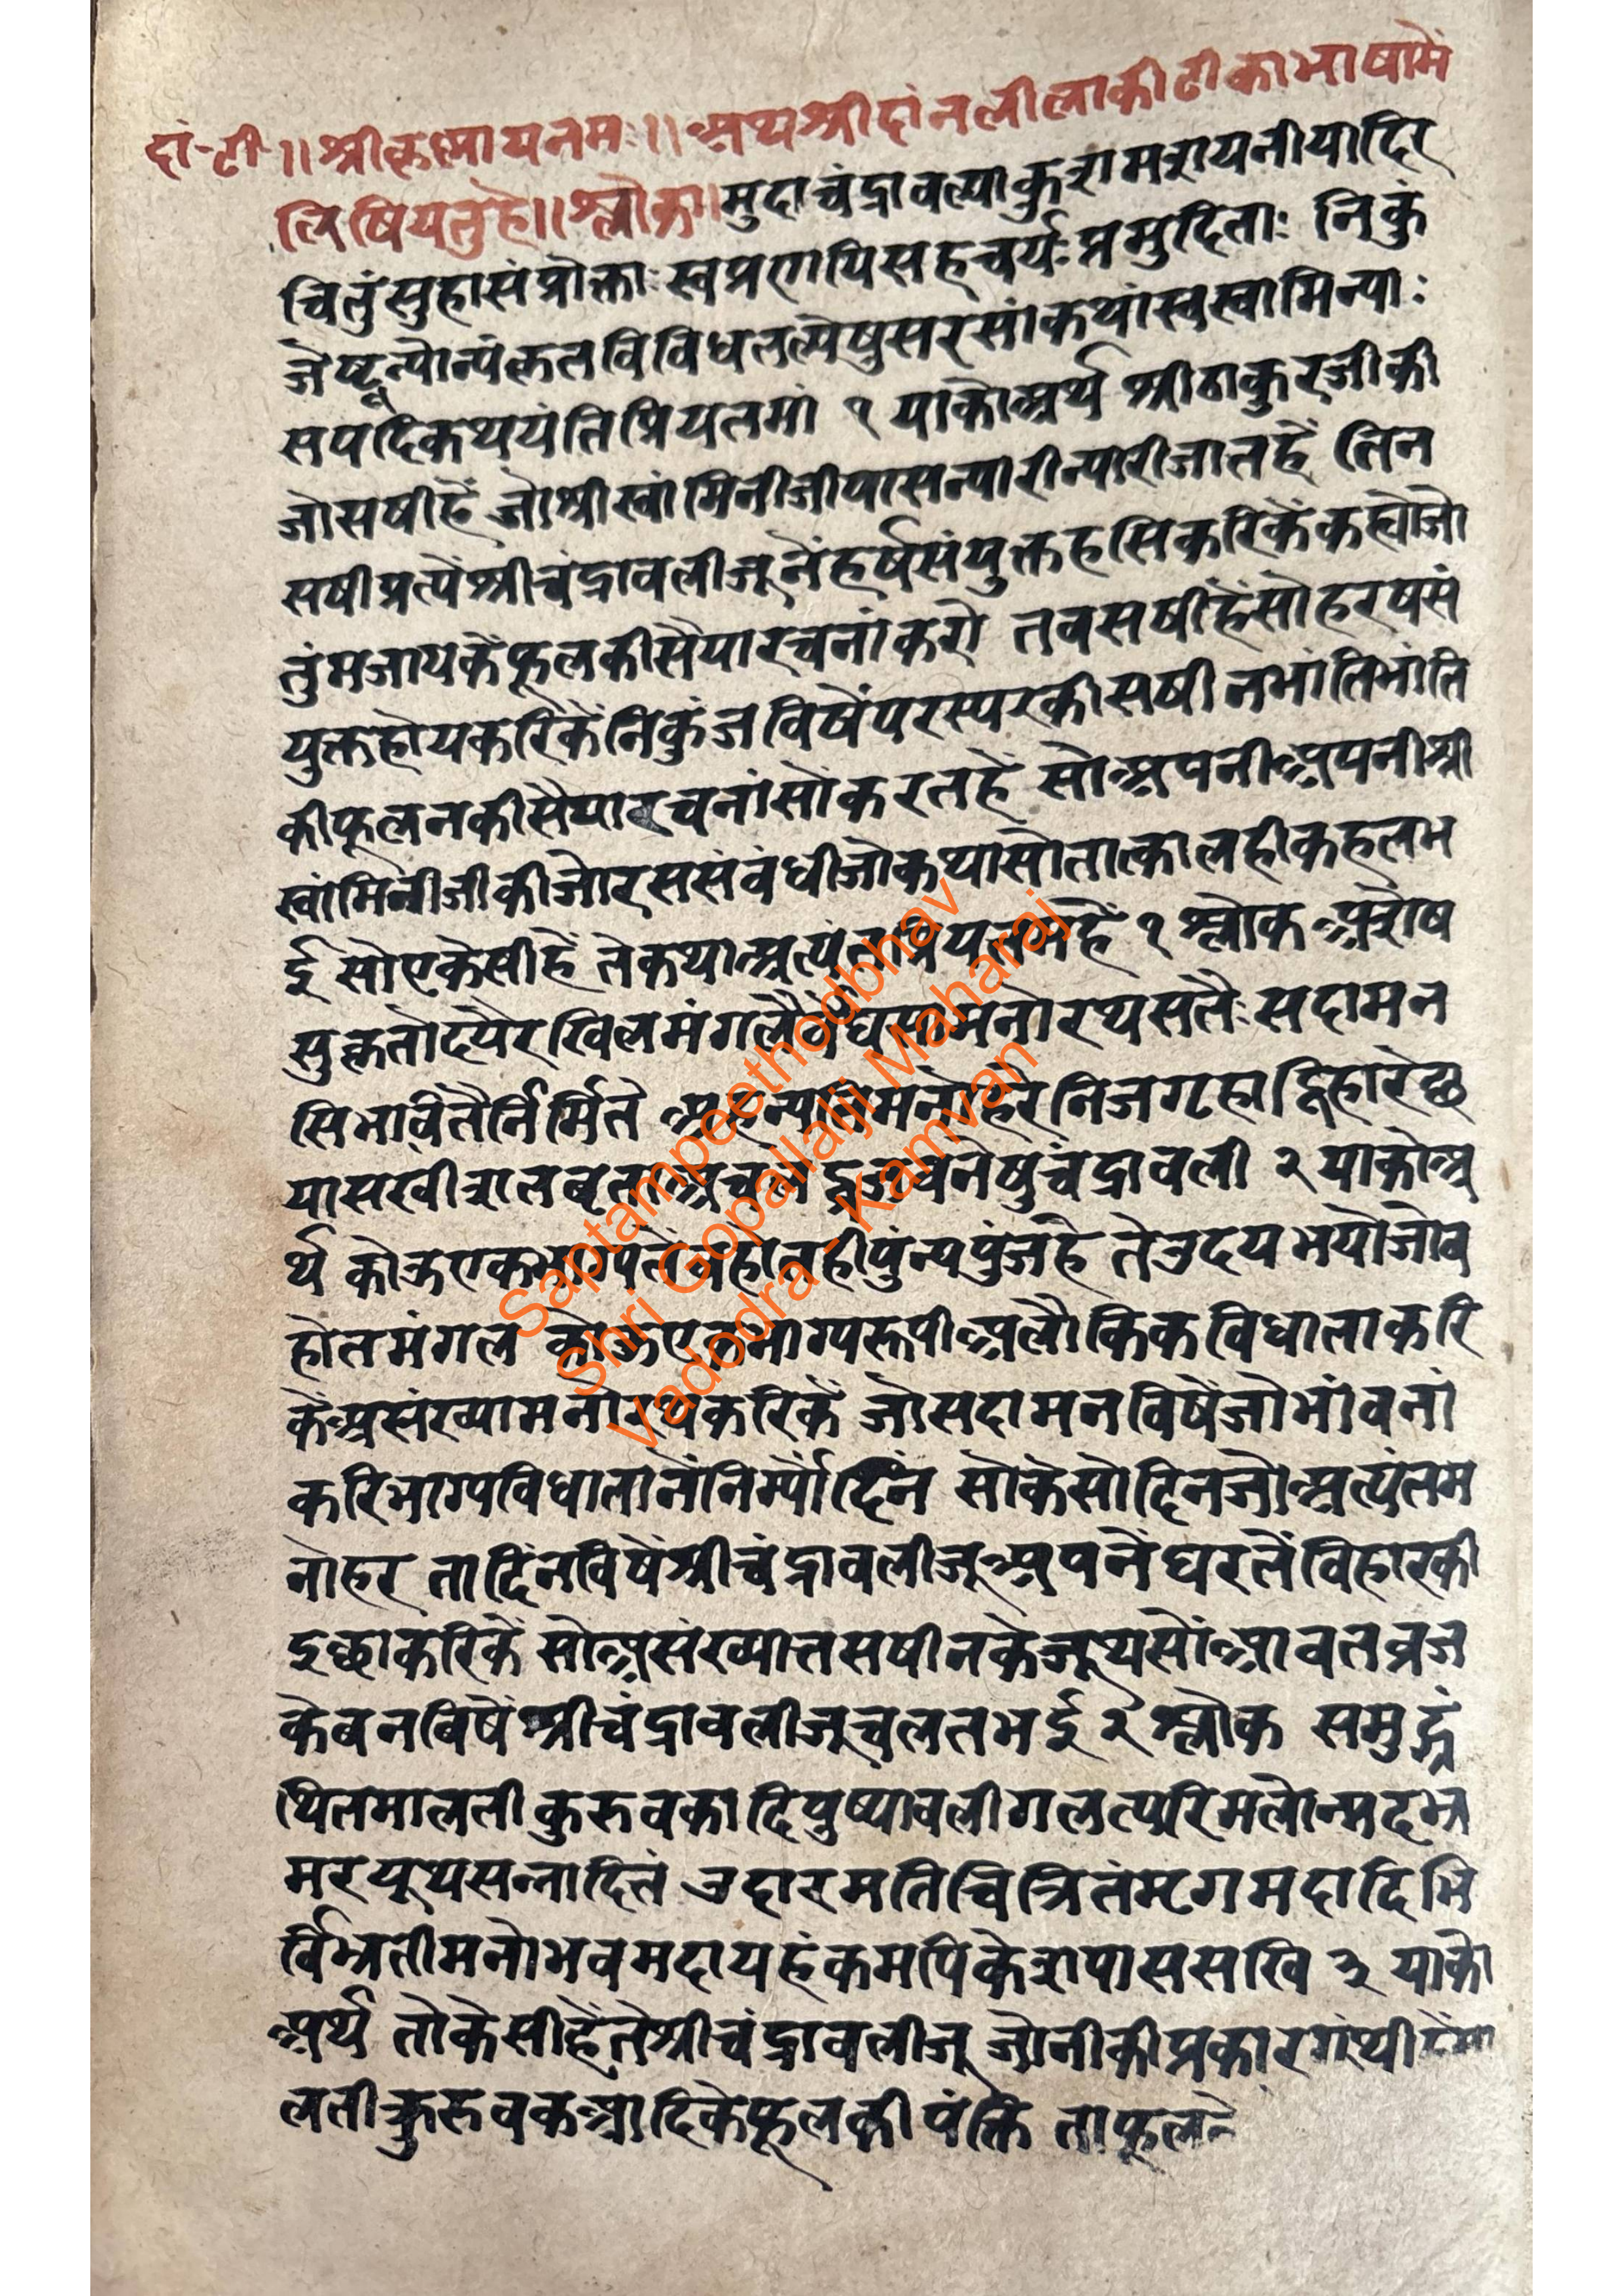 दां-टी-॥श्रीकृष्णाय नमः॥ अथ श्रीदांनलीलाकी टीका भाषामें
लिषियतुहै॥श्लोक॥मुदा चंद्रावल्या कुशमशयनीयादिर
चितुंसुहासं प्रोक्ताः स्वप्रणयिसहचर्यः प्रमुदिताः निकुं
जेष्टून्योन्यंकृतविविधतल्पेषुसरसांकथांस्वस्वामिन्याः
सपदिकथयंति प्रियतमां १ याकोअर्थ श्रीठाकुरजीकी
जोसषीहें जोश्रीस्वांमिनीजीपासन्यारीन्यारीजातहें तिन
सषीप्रत्यें श्रीचंद्रावलीजूनेंहर्षसंयुक्तहसिकरिकेंकह्योजो
तुंमजायकेंफूलकीसैयारचनांकरो तबसषीहेंसोहरषसं
युक्तहोयकरिकेंनिकुंज विषेंपरस्परकीसषीनभांतिभांति
कीफूलनकीसैयारचनांसोंकरतहें सोअपनीअपनीश्री
स्वांमिनीजीकीजोरससंबंधीजोकथासोतात्कालहीकहतभ
ई सोएकेसीहें तेकथाअत्यंतप्रियतमहें १ श्लोक अशेष
सुकृतोदयैरखिलमंगलैर्वेधसामनोरथसतैःसदामन
सिभावितैर्निर्मिते अहन्यतिमनोहरे निजगृहाद्विहारेछ
यासखीशतबृताअचलद्व्रजवनेषुचंद्रावली २ याकोअ
र्थ कोऊएकभाग्यतेंबहोतहीपुंन्यपुंजहै तेउदय भयोजोब
होतमंगल कोऊएकभाग्यरूपीअलौकिकविधाताकरि
केंअसंख्यामनोरथकरिकें जोसदामनविषेंजोभांवनां
करिभाग्यविधातानेंनिर्म्यौदिंन सोकेसोदिनजोअत्यंतम
नोहर तादिंनविषेंश्रीचंद्रावलीजूअपनेंघरतेंविहारकी
इछाकरिकें सोअसंख्यातसषीनकेजूथसोंआवतव्रज
केबनबिषें श्रीचंद्रावलीजूचलतभई २ श्लोक समुद्ग्रं
थितमालती कुरुवकादिपुष्पावलीगलत्परिमलोन्मदभ्र
मरयूथसन्नादितं उदारमतिचित्रितंमृगमदादिभि
र्विभ्रतीमनोभवमदायहंकमपिकेशपाससखि ३ याको
अर्थ तोकेसीहेंतेश्रीचंद्रावलीजू ज्योनीकीप्रकारगंथीहैमा
लतीकुरुवकआदिकेफूलकी पंक्ति ताफूलन
Saptampeethodbhav
Shri Gopallalji Maharaj
Vadodra - Kamvan